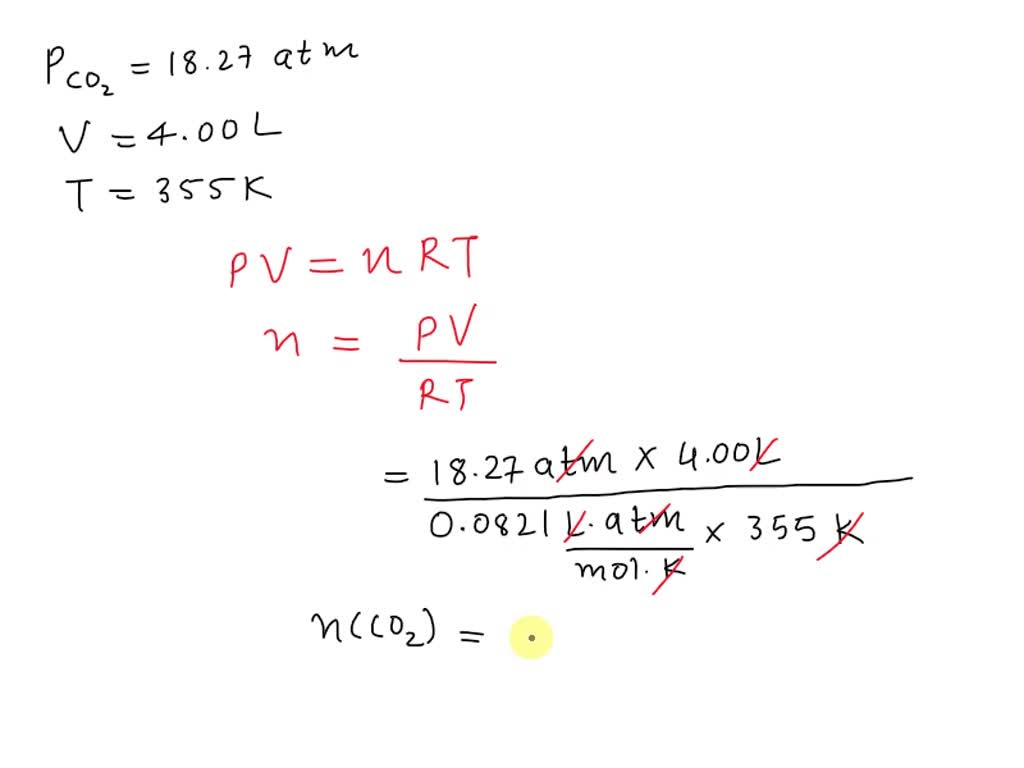 P_CO₂ = 18.27 atm
V = 4.00 L
T = 355 K
PV = nRT
n = PV
RT
= 18.27 atm × 4.00 L
0.0821 L·atm × 355 K
mol·K
n(CO₂) =